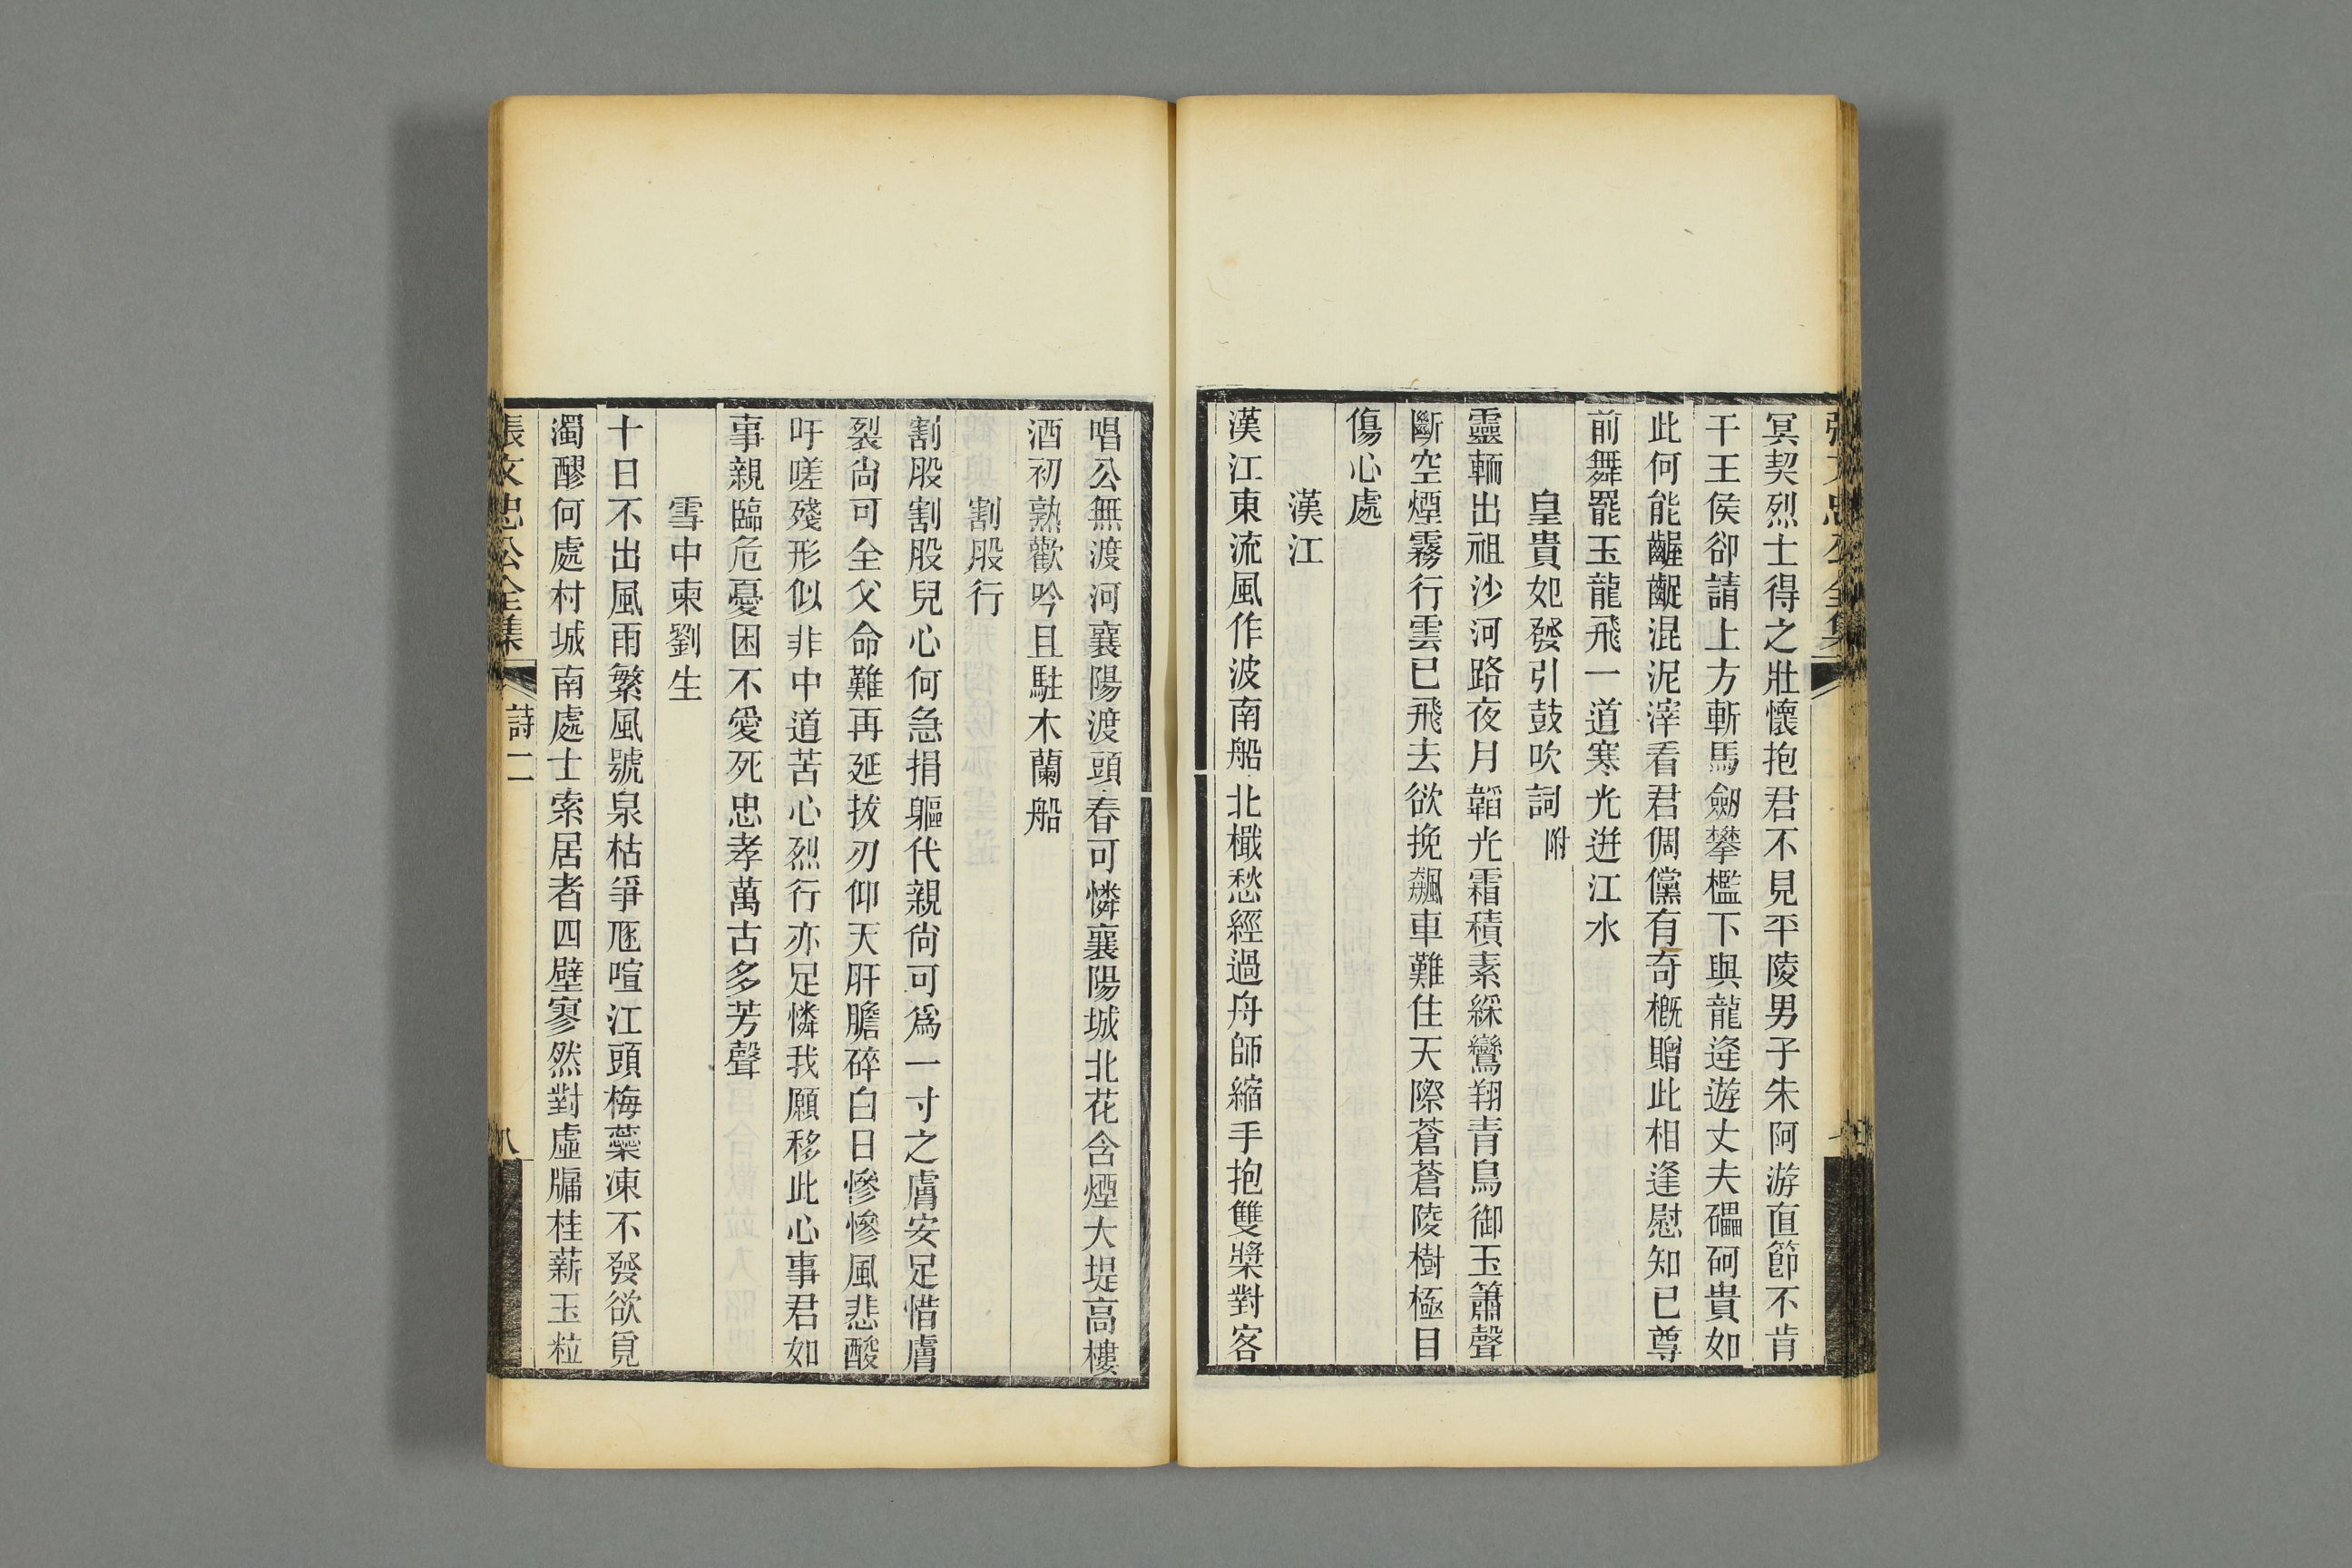 張文忠公全集
冥契烈士得之壯懷抱君不見平陵男子朱阿游直節不肯
干王侯卻請上方斬馬劒攀檻下與龍逄遊丈夫礧砢貴如
此何能齷齪混泥滓看君倜儻有奇槪贈此相逢慰知已尊
前舞罷玉龍飛一道寒光迸江水
皇貴妃發引鼓吹詞附
靈輀出祖沙河路夜月韜光霜積素綵鸞翔青鳥御玉簫聲
斷空煙霧行雲已飛去欲挽飆車難住天際蒼蒼陵樹極目
傷心處
漢江
漢江東流風作波南船北檝愁經過舟師縮手抱雙槳對客
唱公無渡河襄陽渡頭春可憐襄陽城北花含煙大堤高樓
酒初熟歡吟且駐木蘭船
割股行
割股割股兒心何急捐軀代親尙可爲一寸之膚安足惜膚
裂尙可全父命難再延拔刃仰天肝膽碎白日慘慘風悲酸
吁嗟殘形似非中道苦心烈行亦足憐我願移此心事君如
事親臨危憂困不愛死忠孝萬古多芳聲
雪中柬劉生
十日不出風雨繁風號泉枯爭豗喧江頭梅蘂凍不發欲覓
濁醪何處村城南處士索居者四壁寥然對虛牖桂薪玉粒
張文忠公全集
詩二
八